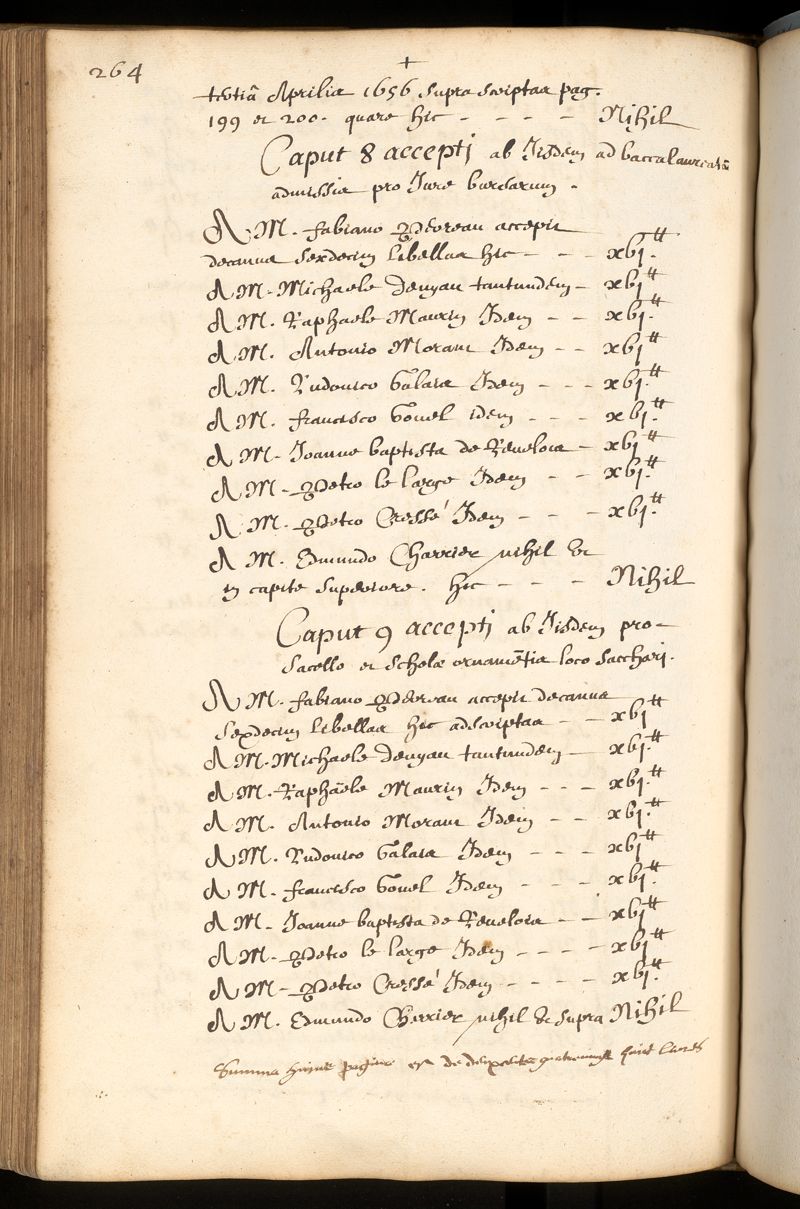 264
+
tertiâ Aprilis 1656 supra scriptas pag.
199 et 200. quare hic - - - - Nihil
Caput 8 accepti ab Iisdem ad baccalaureatū
admissis pro Iure bursarum .
A M. fabiano Perreau accepit
decanus sexdecim libellas hic - - - xbj.tt
A M. Michaele Denyau tantundem - xbj.tt
A M. Raphaele Maurin Idem - - xbj.tt
A M. Antonio Morand Idem - - xbj.tt
A M. Ludovico Galais Idem - - - xbj.tt
A M. francisco Gouel idem - - - xbj.tt
A M. Joanne baptista de Revelois - xbj.tt
A M. Petro le large Idem - - xbj.tt
A M. Petro Cressé Idem - - - xbj.tt
A M. Edmundo Charrier nihil ut
in capite superiore . hic - - - - Nihil
Caput 9 accepti ab Iisdem pro
Sacello et scholæ ornamētis loco sacchari .
A M. fabiano Perreau accepit decanus
sexdecim libellas hic adscriptas - - xbj.tt
A M. Michaele Denyau tantundem - xbj.tt
A M. Raphaele Maurin Idem - - - xbj.tt
A M. Antonio Morand Idem - - xbj.tt
A M. Ludovico Galais Idem - - - xbj.tt
A M. francisco Gouel Idem - - - xbj.tt
A M. Joanne baptista de Revelois - - xbj.tt
A M. Petro le large Idem - - - - xbj.tt
A M. Petro Cressé Idem - - - - xbj.tt
A M. Edmundo Charrier nihil ut supra Nihil
Summa huius paginæ est de huict livres